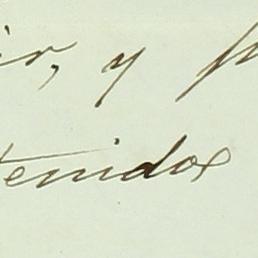 ir, y
tenidos